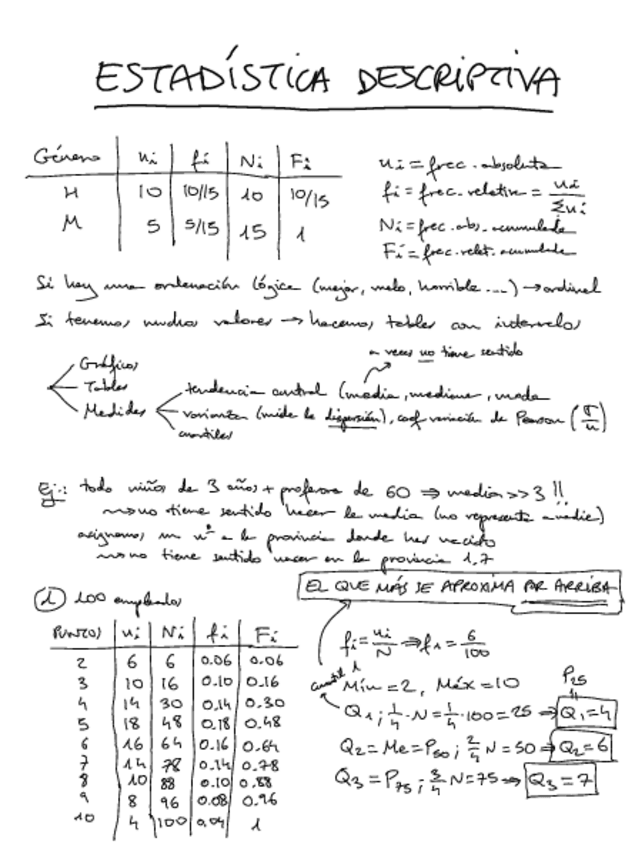 ESTADÍSTICA DESCRIPTIVA
Género ni fi Ni Fi
H 10 10/15 10 10/15
M 5 5/15 15 1
ni = frec. absoluta
fi = frec. relativa = ni/Σni
Ni = frec. abs. acumulada
Fi = frec. relat. acumulada
Si hay una ordenación lógica (mejor, malo, horrible ...) → ordinal
Si tenemos muchos valores → hacemos tablas con intervalos
a veces no tiene sentido
Gráficos
Tablas
Medidas
tendencia central (media, mediana, moda
varianza (mide la dispersión), coef variación de Pearson (σ/u)
cuartiles
Ej.: todo niños de 3 años + profesora de 60 ⇒ media >> 3 !!
no tiene sentido hacer la media (no representa a nadie)
asignamos un nº a la provincia donde has nacido
no tiene sentido nacer en la provincia 1,7
EL QUE MÁS SE APROXIMA POR ARRIBA
1 100 empleados
PUNTOS ni Ni fi Fi
2 6 6 0.06 0.06
3 10 16 0.10 0.16
4 14 30 0.14 0.30
5 18 48 0.18 0.48
6 16 64 0.16 0.64
7 14 78 0.14 0.78
8 10 88 0.10 0.88
9 8 96 0.08 0.96
10 4 100 0.04 1
fi = ni/N ⇒ f1 = 6/100
cuartil 1
Mín = 2, Máx = 10
P25
Q1; 1/4 · N = 1/4 · 100 = 25 ⇒ Q1 = 4
Q2 = Me = P50; 2/4 N = 50 ⇒ Q2 = 6
Q3 = P75; 3/4 N = 75 ⇒ Q3 = 7